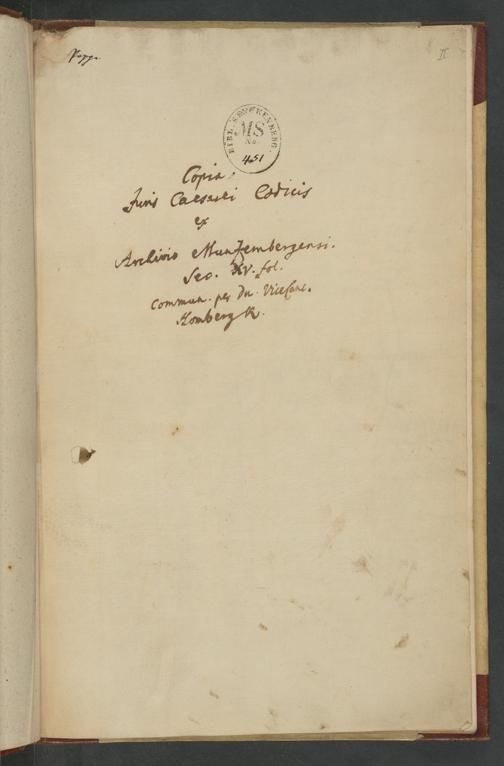 II
BIBL. SENCKENBERG.
MS
No.
451
Copia
Juris Caesarei Codicis
ex
Archivio Munzembergensi.
Sec. XV. fol.
commun. per Dn. Vicecanc.
Kombergk.